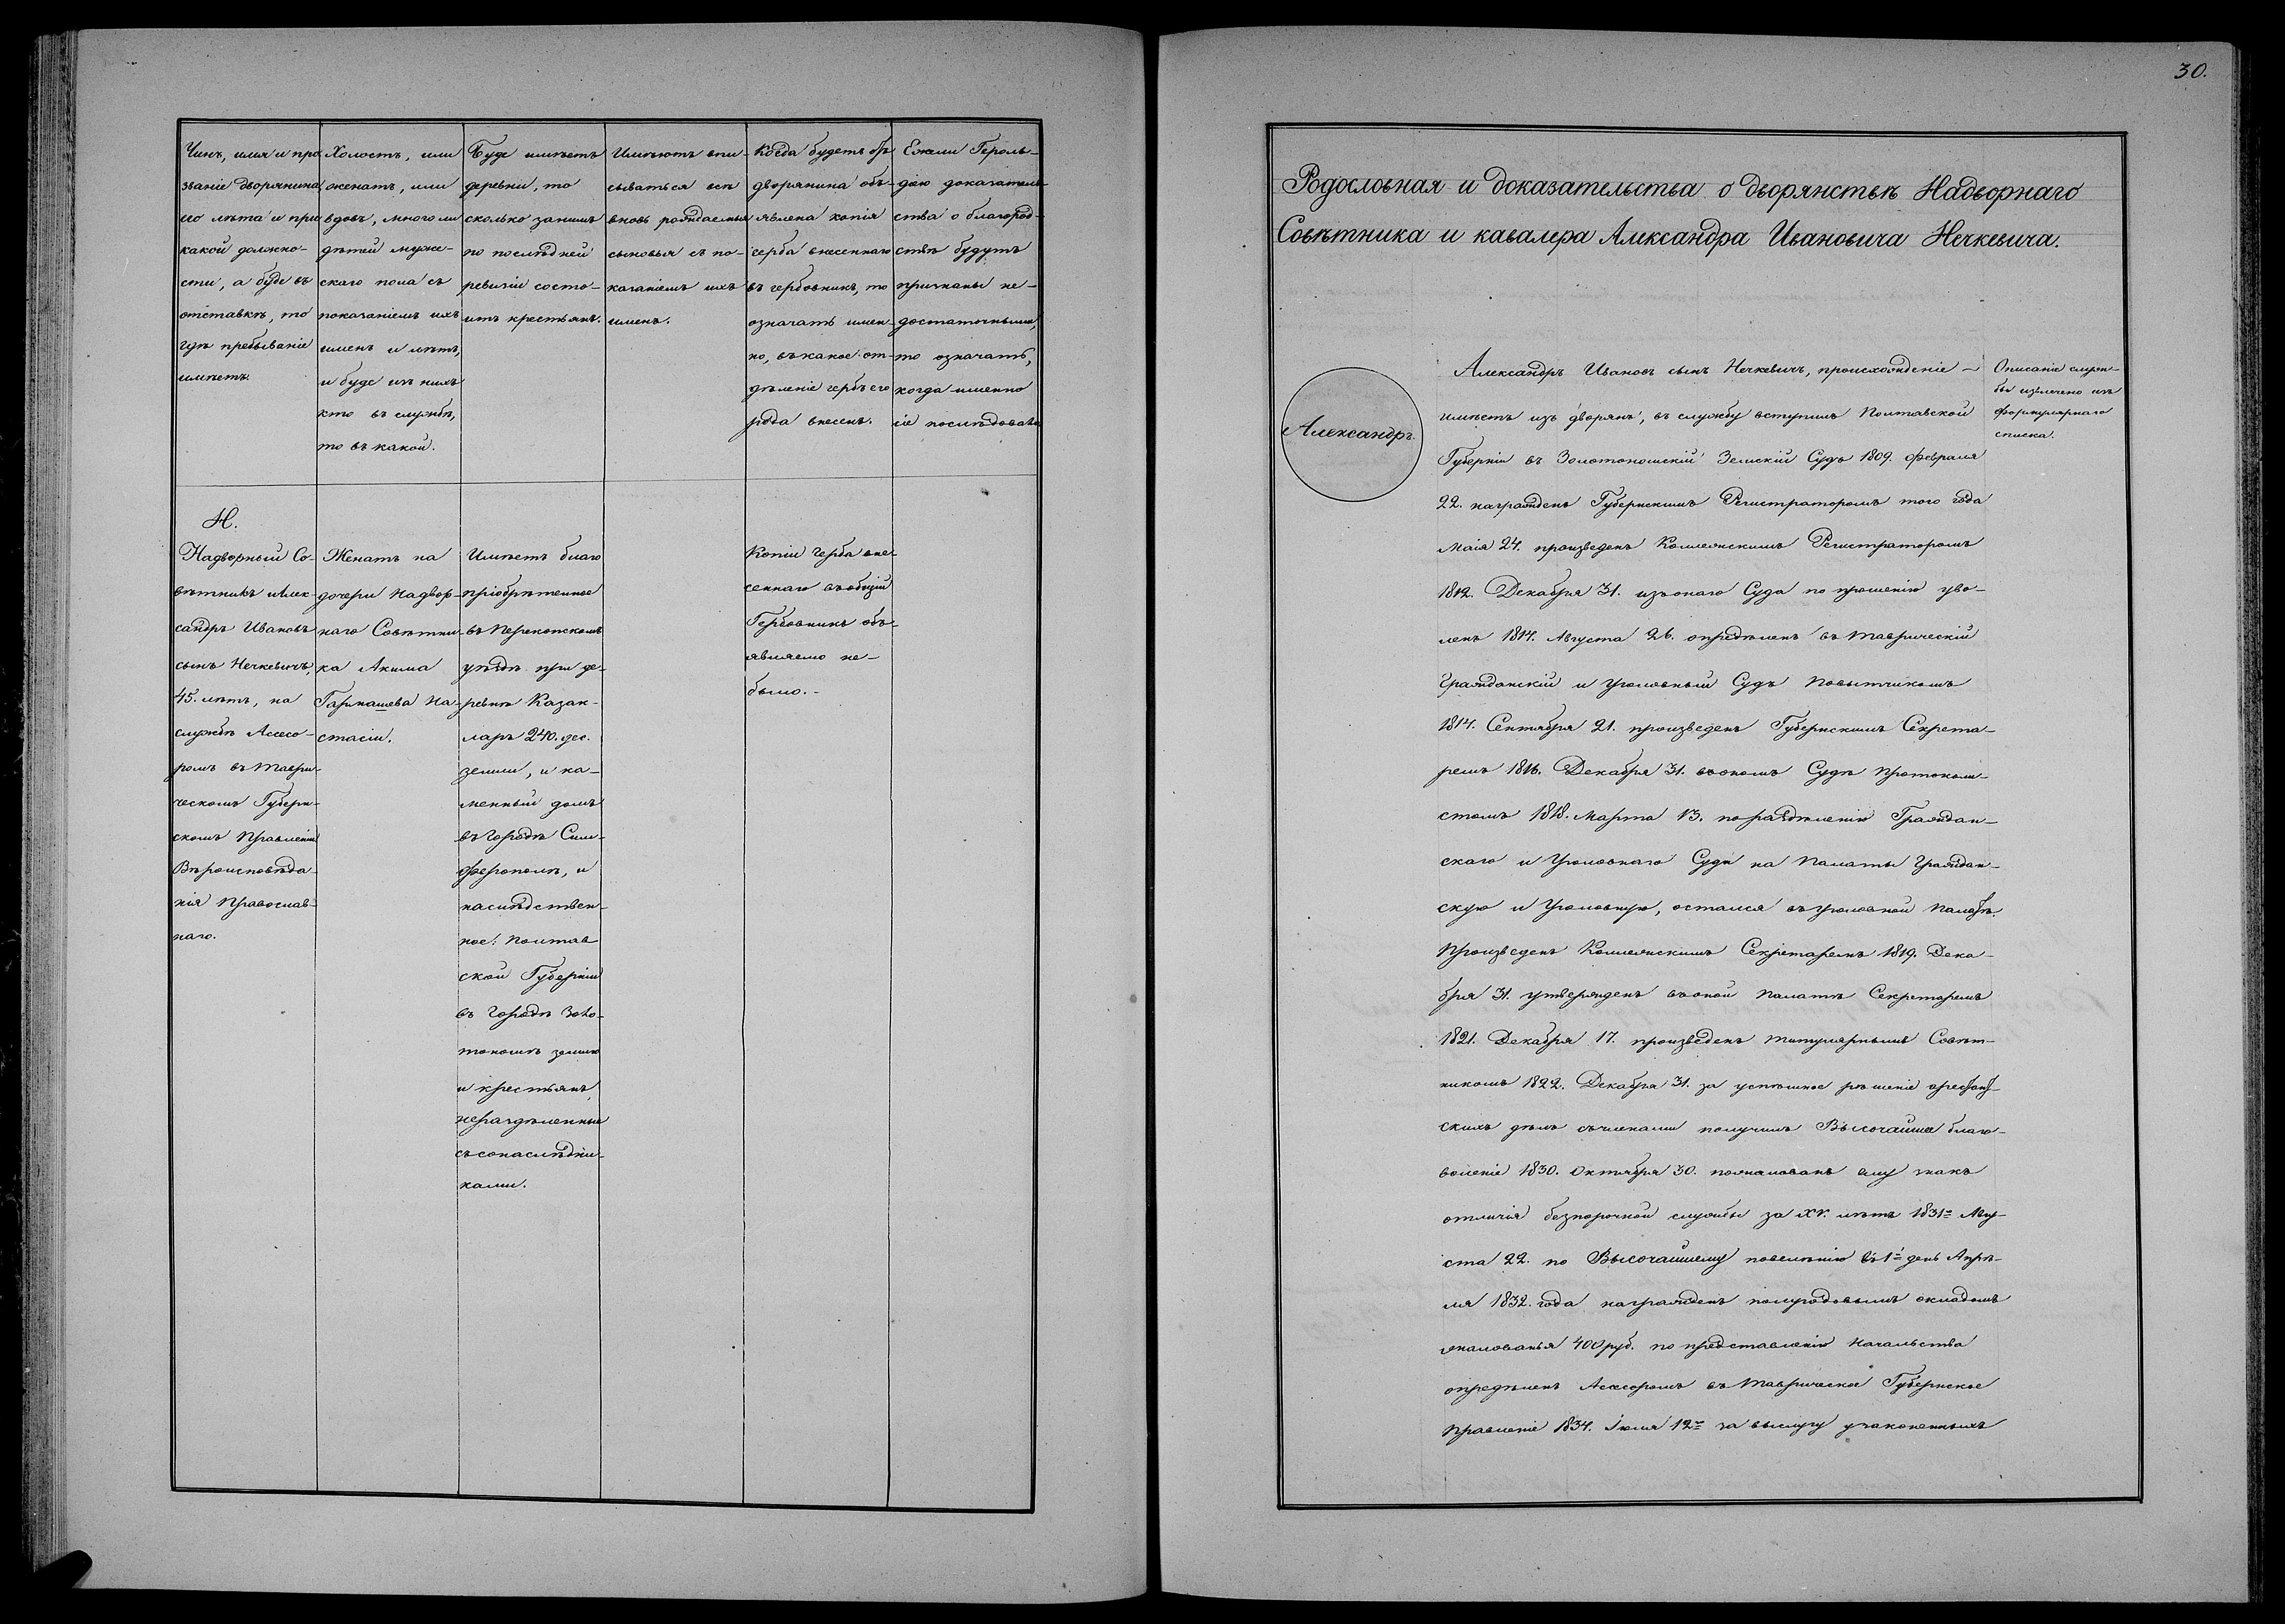 Чинъ, имя и про-
званіе дворянина
его лѣта и при
какой должно-
сти, а буде въ
отставкѣ, то
гдѣ пребываніе
имѣетъ.
Холостъ, или
женатъ, или
вдовъ, много ли
дѣтей муже-
скаго пола съ
показаніемъ ихъ
именъ и лѣтъ,
и буде изъ нихъ
кто въ службѣ,
то въ какой.
Буде имѣетъ
деревни, то
сколько за нимъ
по послѣдней
ревизіи состо-
итъ крестьянъ.
Имѣютъ впи-
сываться всѣ
вновь рождаемыя
сыновья съ по-
казаніемъ ихъ
именъ.
Когда будетъ отъ
дворянина объ-
явлена копія
герба внесеннаго
въ гербовникъ, то
означать имен-
но, въ какое от-
дѣленіе гербъ его
рода внесенъ.
Ежели Героль-
діею доказатель-
ства о благород-
ствѣ будутъ
признаны не-
достаточными,
то означать,
когда именно
сіе послѣдовало
Н.
Надворный Со-
вѣтникъ Алек-
сандръ Ивановъ
сынъ Нечкевичъ,
45. лѣтъ, на
службѣ Ассесо-
ромъ въ Таври-
ческомъ Губерн-
скомъ Правленіи
Вѣроисповѣда-
нія Православ-
наго.
Женатъ на
дочери Надвор-
наго Совѣтни-
ка Акима
Гарнашева На-
стасіи.
Имѣетъ благо
пріобрѣтенное
въ Перекопскомъ
уѣздѣ при де-
ревнѣ Казак-
ларъ 240. дес.
земли, и ка-
менный домъ
въ городѣ Сим-
ферополѣ, и
наслѣдствен-
ное: Полтав
ской Губерніи
въ городѣ Золо-
тоношѣ землю
и крестьянъ,
нераздѣленные
съ сонаслѣдни-
ками.
Копіи Герба вне-
сеннаго въ общій
Гербовникъ объ-
являемо не-
было.-
30.
Родословная и доказательства о дворянствѣ Надворнаго
Совѣтника и кавалера Александра Ивановича Нечкевича.
Александръ.
Александръ Ивановъ сынъ Нечкевичъ, происхожденіе -
имѣетъ изъ дворянъ, въ службу вступилъ Полтавской
Губерніи въ Золотоношскій Земскій Судъ 1809. февраля
22. награжденъ Губернскимъ Регистраторомъ того года
Маія 24. произведенъ Коллежскимъ Регистраторомъ
1812. Декабря 31. изъ онаго Суда по прошенію уво-
ленъ 1814. Августа 26. опредѣленъ въ Таврическій
Гражданскій и Уголовный Судъ Повытчикомъ
1814. Сентября 21. произведенъ Губернскимъ Секрета-
ремъ 1816. Декабря 31. въ ономъ Судѣ Протоколи-
стомъ 1818. Марта 13. по раздѣленію Граждан-
скаго и Уголовнаго Суда на Палаты Граждан-
скую и Уголовную, остался въ Уголовной Палатѣ.
Произведенъ Коллежскимъ Секретаремъ 1819. Дека-
бря 31. утвержденъ въ оной Палатѣ Секретаремъ
1821. Декабря 17. произведенъ Титулярнымъ Совѣт-
никомъ 1822. Декабря 31. за успѣшное рѣшеніе арестант-
скихъ дѣлъ съ членами получилъ Высочайшее благо-
воленіе 1830. Октября 30. пожалованъ ему знакъ
отличія безпорочной службы за XV. лѣтъ 1831го Авгу-
ста 22. по Высочайшему повелѣнію въ 1й день Апрѣ-
ля 1832. года награжденъ полугодовымъ окладомъ
жалованья 400 руб. по представленію Начальства
опредѣленъ Ассесоромъ въ Таврическое Губернское
Правленіе 1834. Іюля 12го за выслугу узаконенныхъ
Описаніе служ-
бы извлечено изъ
формулярнаго
списка.